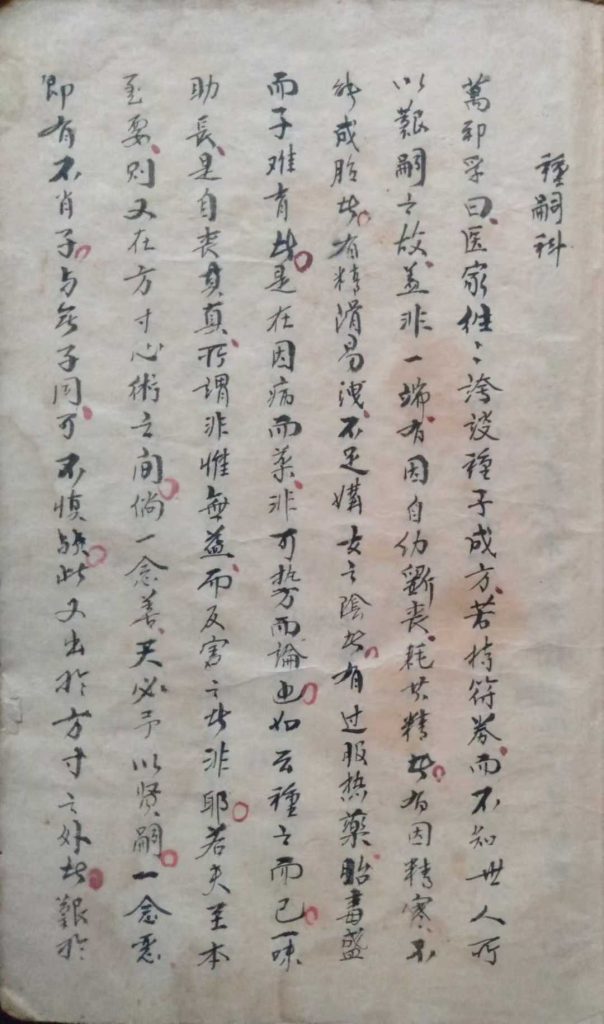 種嗣科
萬邦孚曰医家徃々誇設種子成方若持符券而不知世人所
以艱嗣之故盖非一端有因自仂斵丧耗其精者有因精寒不
能成胎者有精滑易洩不足媾女之陰者有过服热藥胎毒盛
而子难育者是在因病而薬非可执方而論也如云種之而已一味
助長是自丧其真所谓非惟無益而反害之者非耶若夫至本
至要则又在方寸心術之间倘一念善天必予以贤嗣一念恶
即有不肖子与無子同可不慎欤此又出於方寸之外者艱於